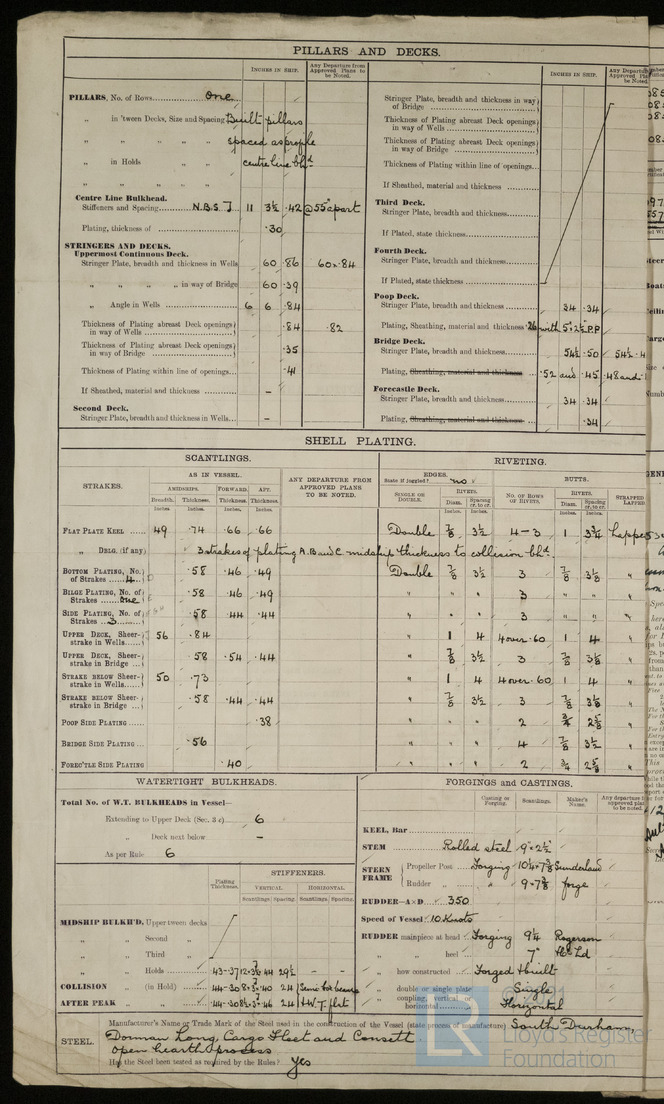 PILLARS AND DECKS.
INCHES IN SHIP. Any Departure from Approved Plans to be Noted.
PILLARS, No. of Rows one
" in 'tween Decks, Size and Spacing Built pillars
" " " " spaced as profile
" in Holds " " centre line bhd
" " " "
Centre Line Bulkhead.
Stiffeners and Spacing N.B.S. 11 3½ .42 @ 55" apart
Plating, thickness of .30
STRINGERS AND DECKS.
Uppermost Continuous Deck.
Stringer Plate, breadth and thickness in Wells 60 .86 60 × .84
" " " " in way of Bridge 60 .39
" Angle in Wells 6 6 .84
Thickness of Plating abreast Deck openings in way of Wells .84 .82
Thickness of Plating abreast Deck openings in way of Bridge .35
Thickness of Plating within line of openings .41
If Sheathed, material and thickness –
Second Deck.
Stringer Plate, breadth and thickness in Wells –
INCHES IN SHIP.
Stringer Plate, breadth and thickness in way of Bridge
Thickness of Plating abreast Deck openings in way of Wells
Thickness of Plating abreast Deck openings in way of Bridge
Thickness of Plating within line of openings
If Sheathed, material and thickness
Third Deck.
Stringer Plate, breadth and thickness
If Plated, state thickness
Fourth Deck.
Stringer Plate, breadth and thickness
If Plated, state thickness
Poop Deck.
Stringer Plate, breadth and thickness 34 .34
Plating, Sheathing, material and thickness .26 with 5 × 2½ P.P
Bridge Deck.
Stringer Plate, breadth and thickness 54½ .50 54½ .4
Plating, Sheathing, material and thickness .52 and .45 .48 and
Forecastle Deck.
Stringer Plate, breadth and thickness 34 .34
Plating, Sheathing, material and thickness .34
SHELL PLATING.
SCANTLINGS. RIVETING.
STRAKES. AS IN VESSEL. ANY DEPARTURE FROM APPROVED PLANS TO BE NOTED.
AMIDSHIPS. FORWARD. AFT.
Breadth. Thickness. Thickness. Thickness.
Inches. Inches. Inches. Inches.
EDGES. State if joggled? no BUTTS.
SINGLE OR DOUBLE. RIVETS. NO. OF ROWS OF RIVETS. RIVETS. STRAPPED LAPPED
Diam. Spacing cr. to cr. Diam. Spacing cr. to cr.
Inches. Inches. Inches. Inches.
FLAT PLATE KEEL 49 .74 .66 .66 Double ⅞ 3½ 4–3 1 3¾ lapped
" DBLG. (if any) 3 strakes of plating A. B and C midship thickness to collision bhd.
BOTTOM PLATING, No. of Strakes 4 .58 .46 .49 Double ⅞ 3½ 3 ⅞ 3⅛ "
BILGE PLATING, No. of Strakes one .58 .46 .49 " " " 3 " " "
SIDE PLATING, No. of Strakes 3 .58 .44 .44 " " " 3 " " "
UPPER DECK, Sheerstrake in Wells 56 .84 " 1 4 4 over .60 1 4 "
UPPER DECK, Sheerstrake in Bridge .58 .54 .44 " ⅞ 3½ 3 ⅞ 3⅛ "
STRAKE BELOW Sheerstrake in Wells 50 .73 " 1 4 4 over .60 1 4 "
STRAKE BELOW Sheerstrake in Bridge .58 .44 .44 " ⅞ 3½ 3 ⅞ 3⅛ "
POOP SIDE PLATING .38 " " " 2 ¾ 2⅝ "
BRIDGE SIDE PLATING .56 " " " 4 ⅞ 3½ "
FOREC'TLE SIDE PLATING .40 " " " 2 ¾ 2⅝ "
WATERTIGHT BULKHEADS.
Total No. of W.T. BULKHEADS in Vessel—
Extending to Upper Deck (Sec. 3 c) 6
" Deck next below –
As per Rule 6
Plating Thickness. STIFFENERS.
VERTICAL. HORIZONTAL.
Scantlings. Spacing. Scantlings. Spacing.
MIDSHIP BULKH'D, Upper tween decks
" " Second "
" " Third "
" " Holds .43-.37 29½ – –
COLLISION " (in Hold) .44-.30 24 Semi box beams
AFTER PEAK " " .44-.30 24 W.T. flat
FORGINGS and CASTINGS.
Casting or Forging. Scantlings. Maker's Name. Any departure from approved plans to be noted.
KEEL, Bar
STEM Rolled steel 9 × 2½
STERN FRAME Propeller Post Forging 10¼ × 7⅜ Sunderland
Rudder " " 9 × 7⅜ forge
RUDDER—A×D 350
Speed of Vessel 10 Knots
RUDDER mainpiece at head Forging 9¼ Rogerson
" " heel " 7" Ltd
" how constructed Forged & built
" double or single plate Single
" coupling, vertical or horizontal Horizontal
STEEL. Manufacturer's Name or Trade Mark of the Steel used in the construction of the Vessel (state process of manufacture) South Durham,
Dorman Long, Cargo Fleet and Consett
Open hearth process
Has the Steel been tested as required by the Rules? Yes
LR
Lloyd's Register
Foundation